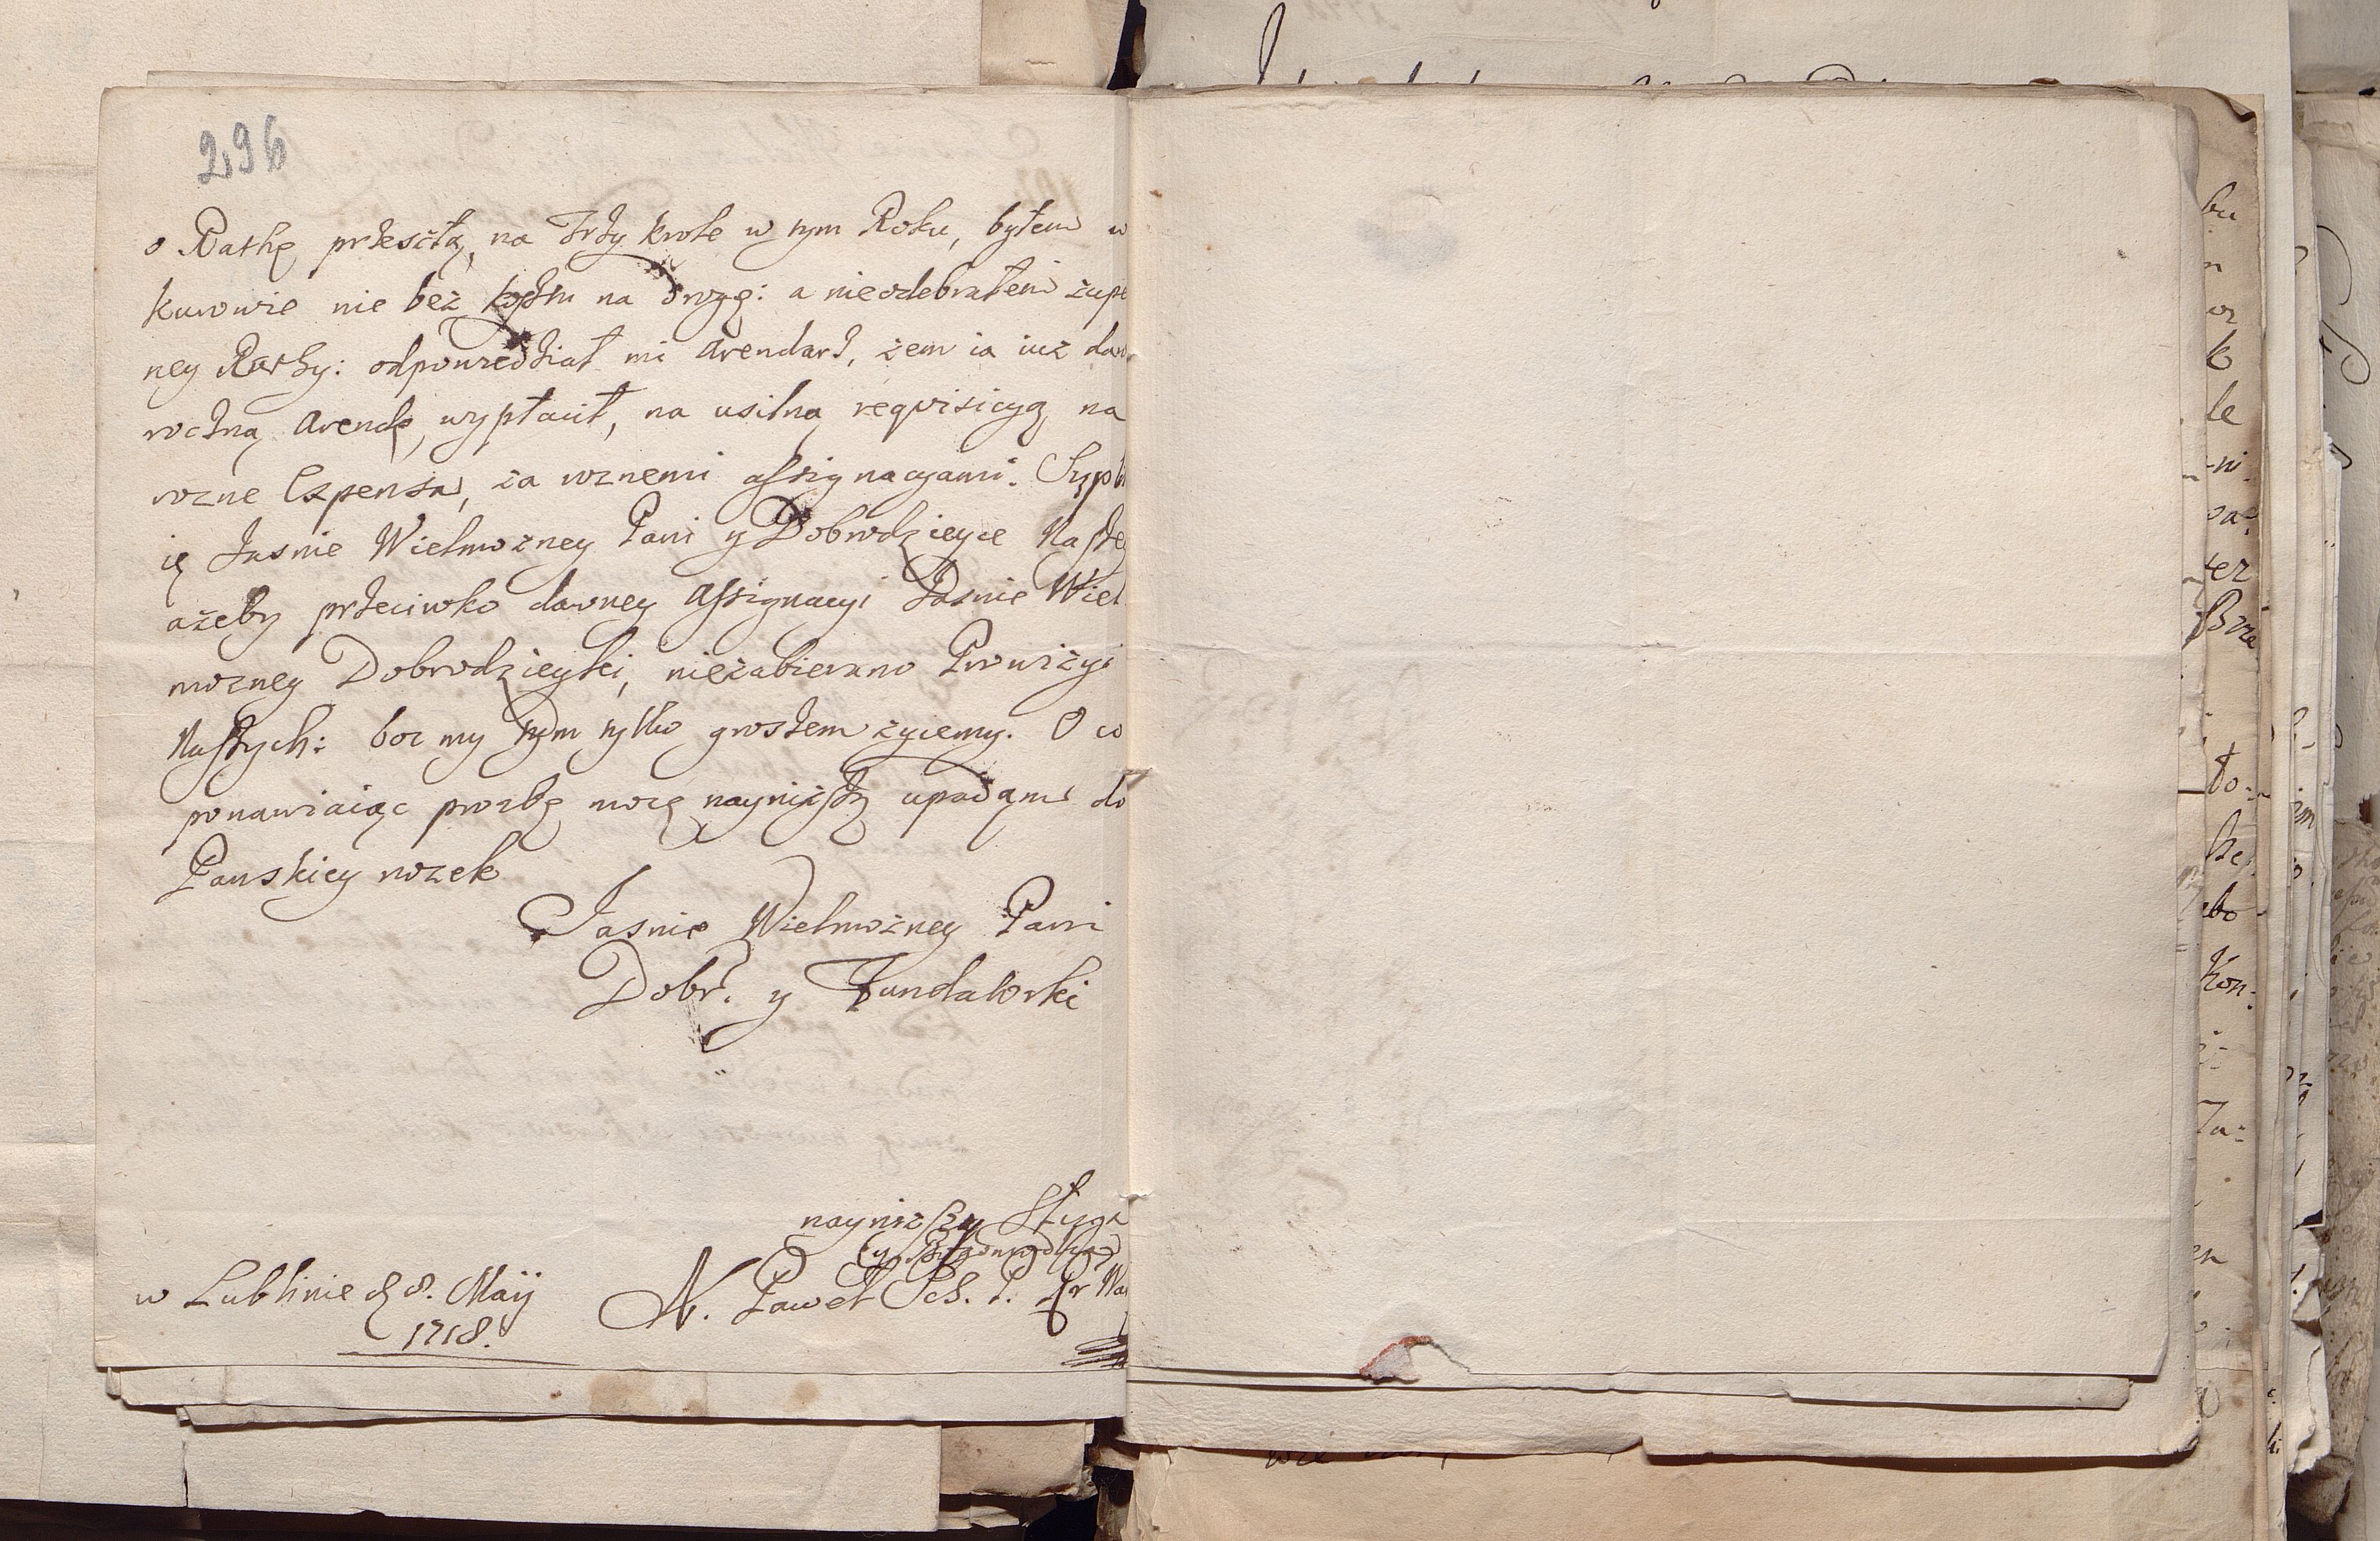 296
o Rathę przeszłą, na Trzy krole w tym Roku, byłem w
Kurowie nie bez kosztu na drogę: a nieodebrałem zupe
ney Rathy: odpowiedział mi Arendarz, żem ia iuz daw
roczną Arendę wypłacił, na usilną reqvisicyą na
rozne Expensa, za roznemi assignacyami.
ię Jasnie Wielmozney Pani y Dobrodzieyce Naszey
ażeby przeciwko dawney Assignacyi Jasnie Wiel
mozney Dobrodzieyki, niezabierano Prowizyi
Naszych: boc my tym tylko groszem zyiemy. O co
ponawiaiąc prozbę moię nayniższą upadam do
Panskiey nozek
Jasnie Wielmożney Pani
Dobr. y Fundatorki
nayniższy Sługa
w Lublinie d 8. Maij
1718.
X. Paweł